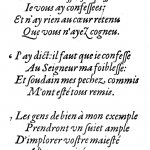 Ie vous ay confessees;
Et n'ay rien au cœur retenu
Que vous n'ayez cogneu.
6 I'ay dict: il faut que ie confesse
Au Seigneur ma foiblesse:
Et soudain mes pechez, commis
M'ont esté tous remis.
7 Les gens de bien à mon exemple
Prendront vn suiet ample
D'implorer vostre maiesté